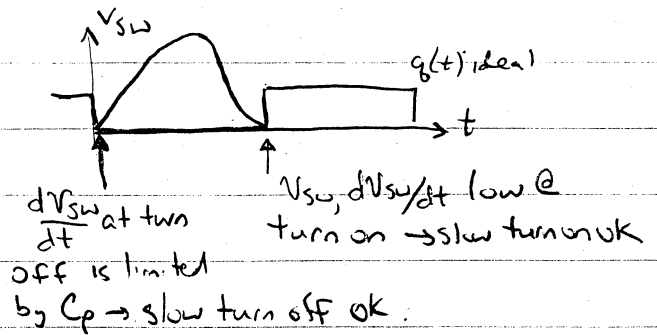 V_SW
q(t) ideal
t
dV_SW/dt at turn
off is limited
by Cp → slow turn off ok.
V_SW, dV_SW/dt low @
turn on → slow turn on ok